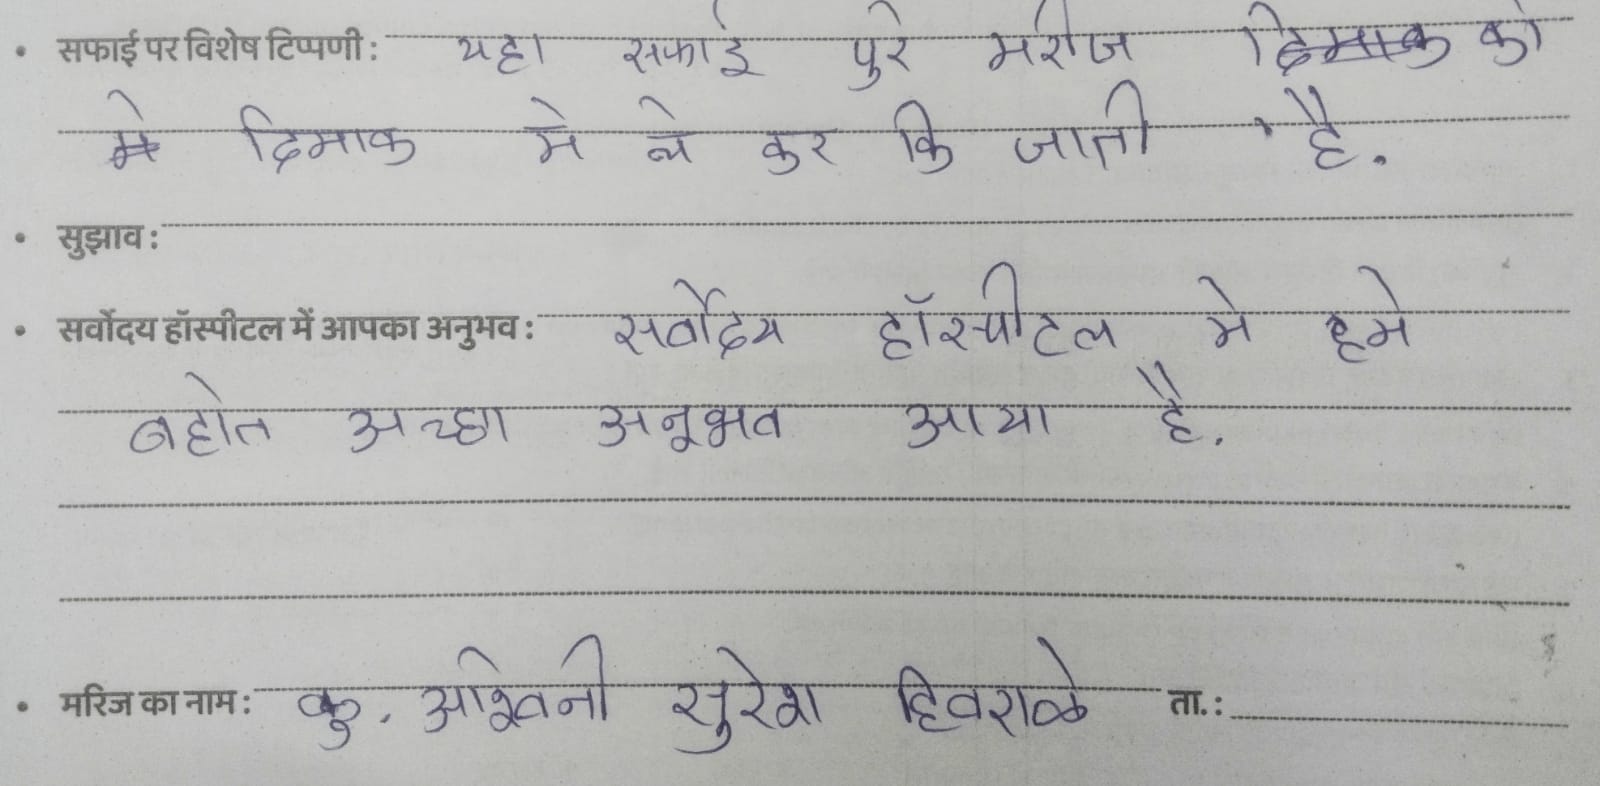 • सफाई पर विशेष टिप्पणी : यहा सफाई पुरे मरीज को
दिमाक मे ले कर कि जाती है.
• सुझाव :
• सर्वोदय हॉस्पीटल में आपका अनुभव : सर्वोदय हॉस्पीटल मे हमे
बहोत अच्छा अनूभव आया है.
• मरिज का नाम : कु. अश्विनी सुरेश हिवराळे ता. :